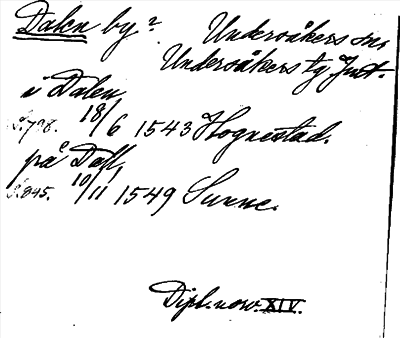 Dalen by?
Undersåkers sn,
Undersåkers tg, Jmt.
i Dalen
S. 798. 18/6 1543 Hognestad.
på Dall,
S. 845. 10/11 1549 Sunne.
Dipl. norv. XIV.